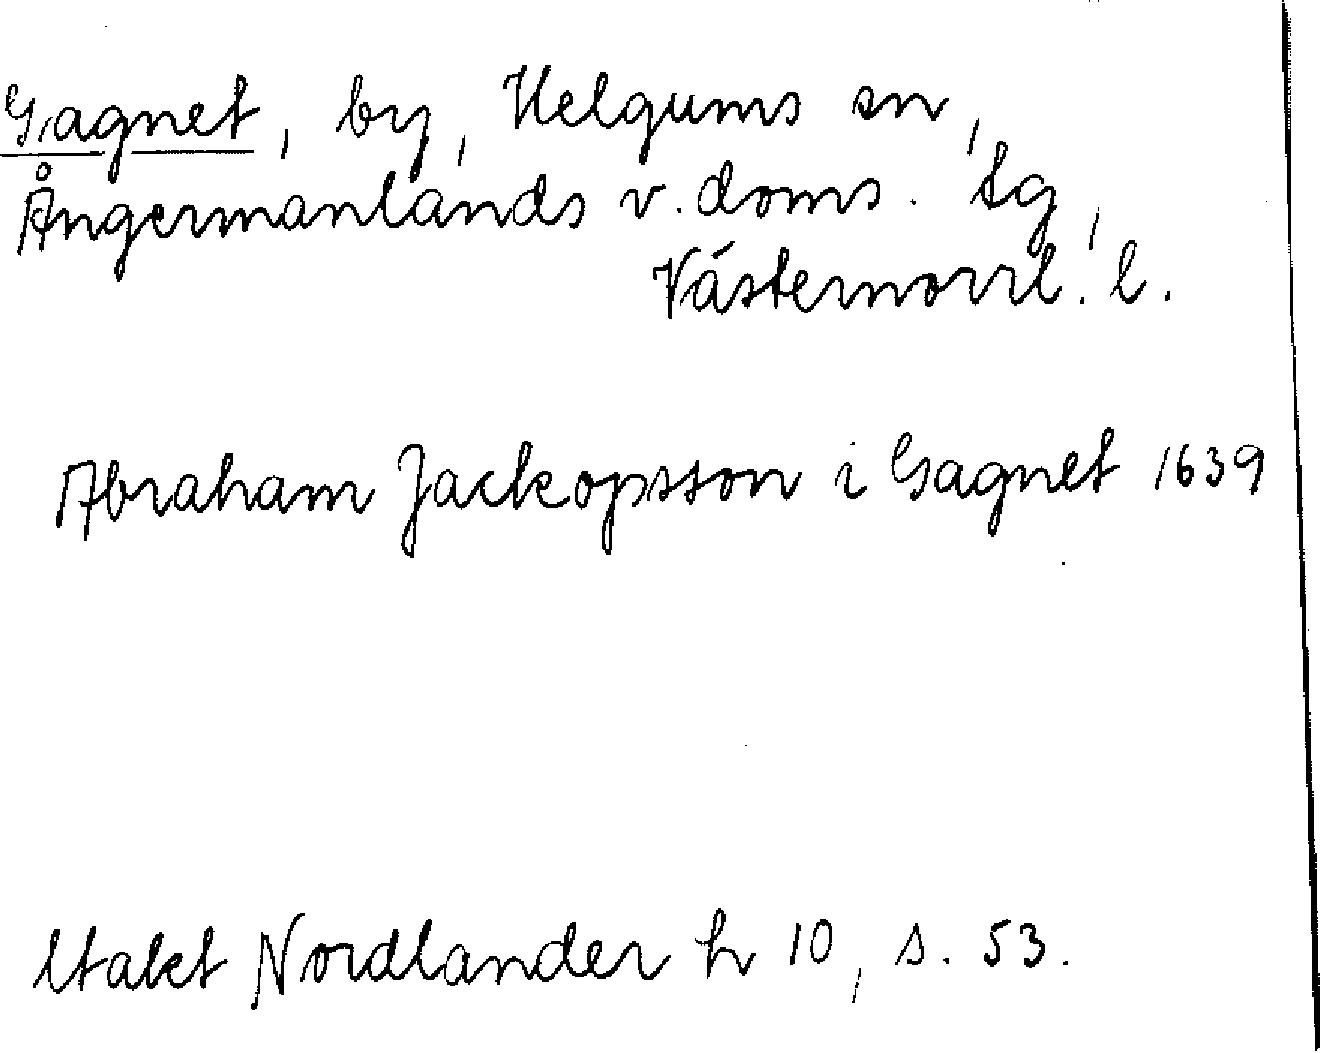 Gagnet, by, Helgums sn,
Ångermanlands v. doms. tg,
Västernorrl. l.
Abraham Jackopsson i Gagnet 1639
Utakt Nordlander h 10, s. 53.